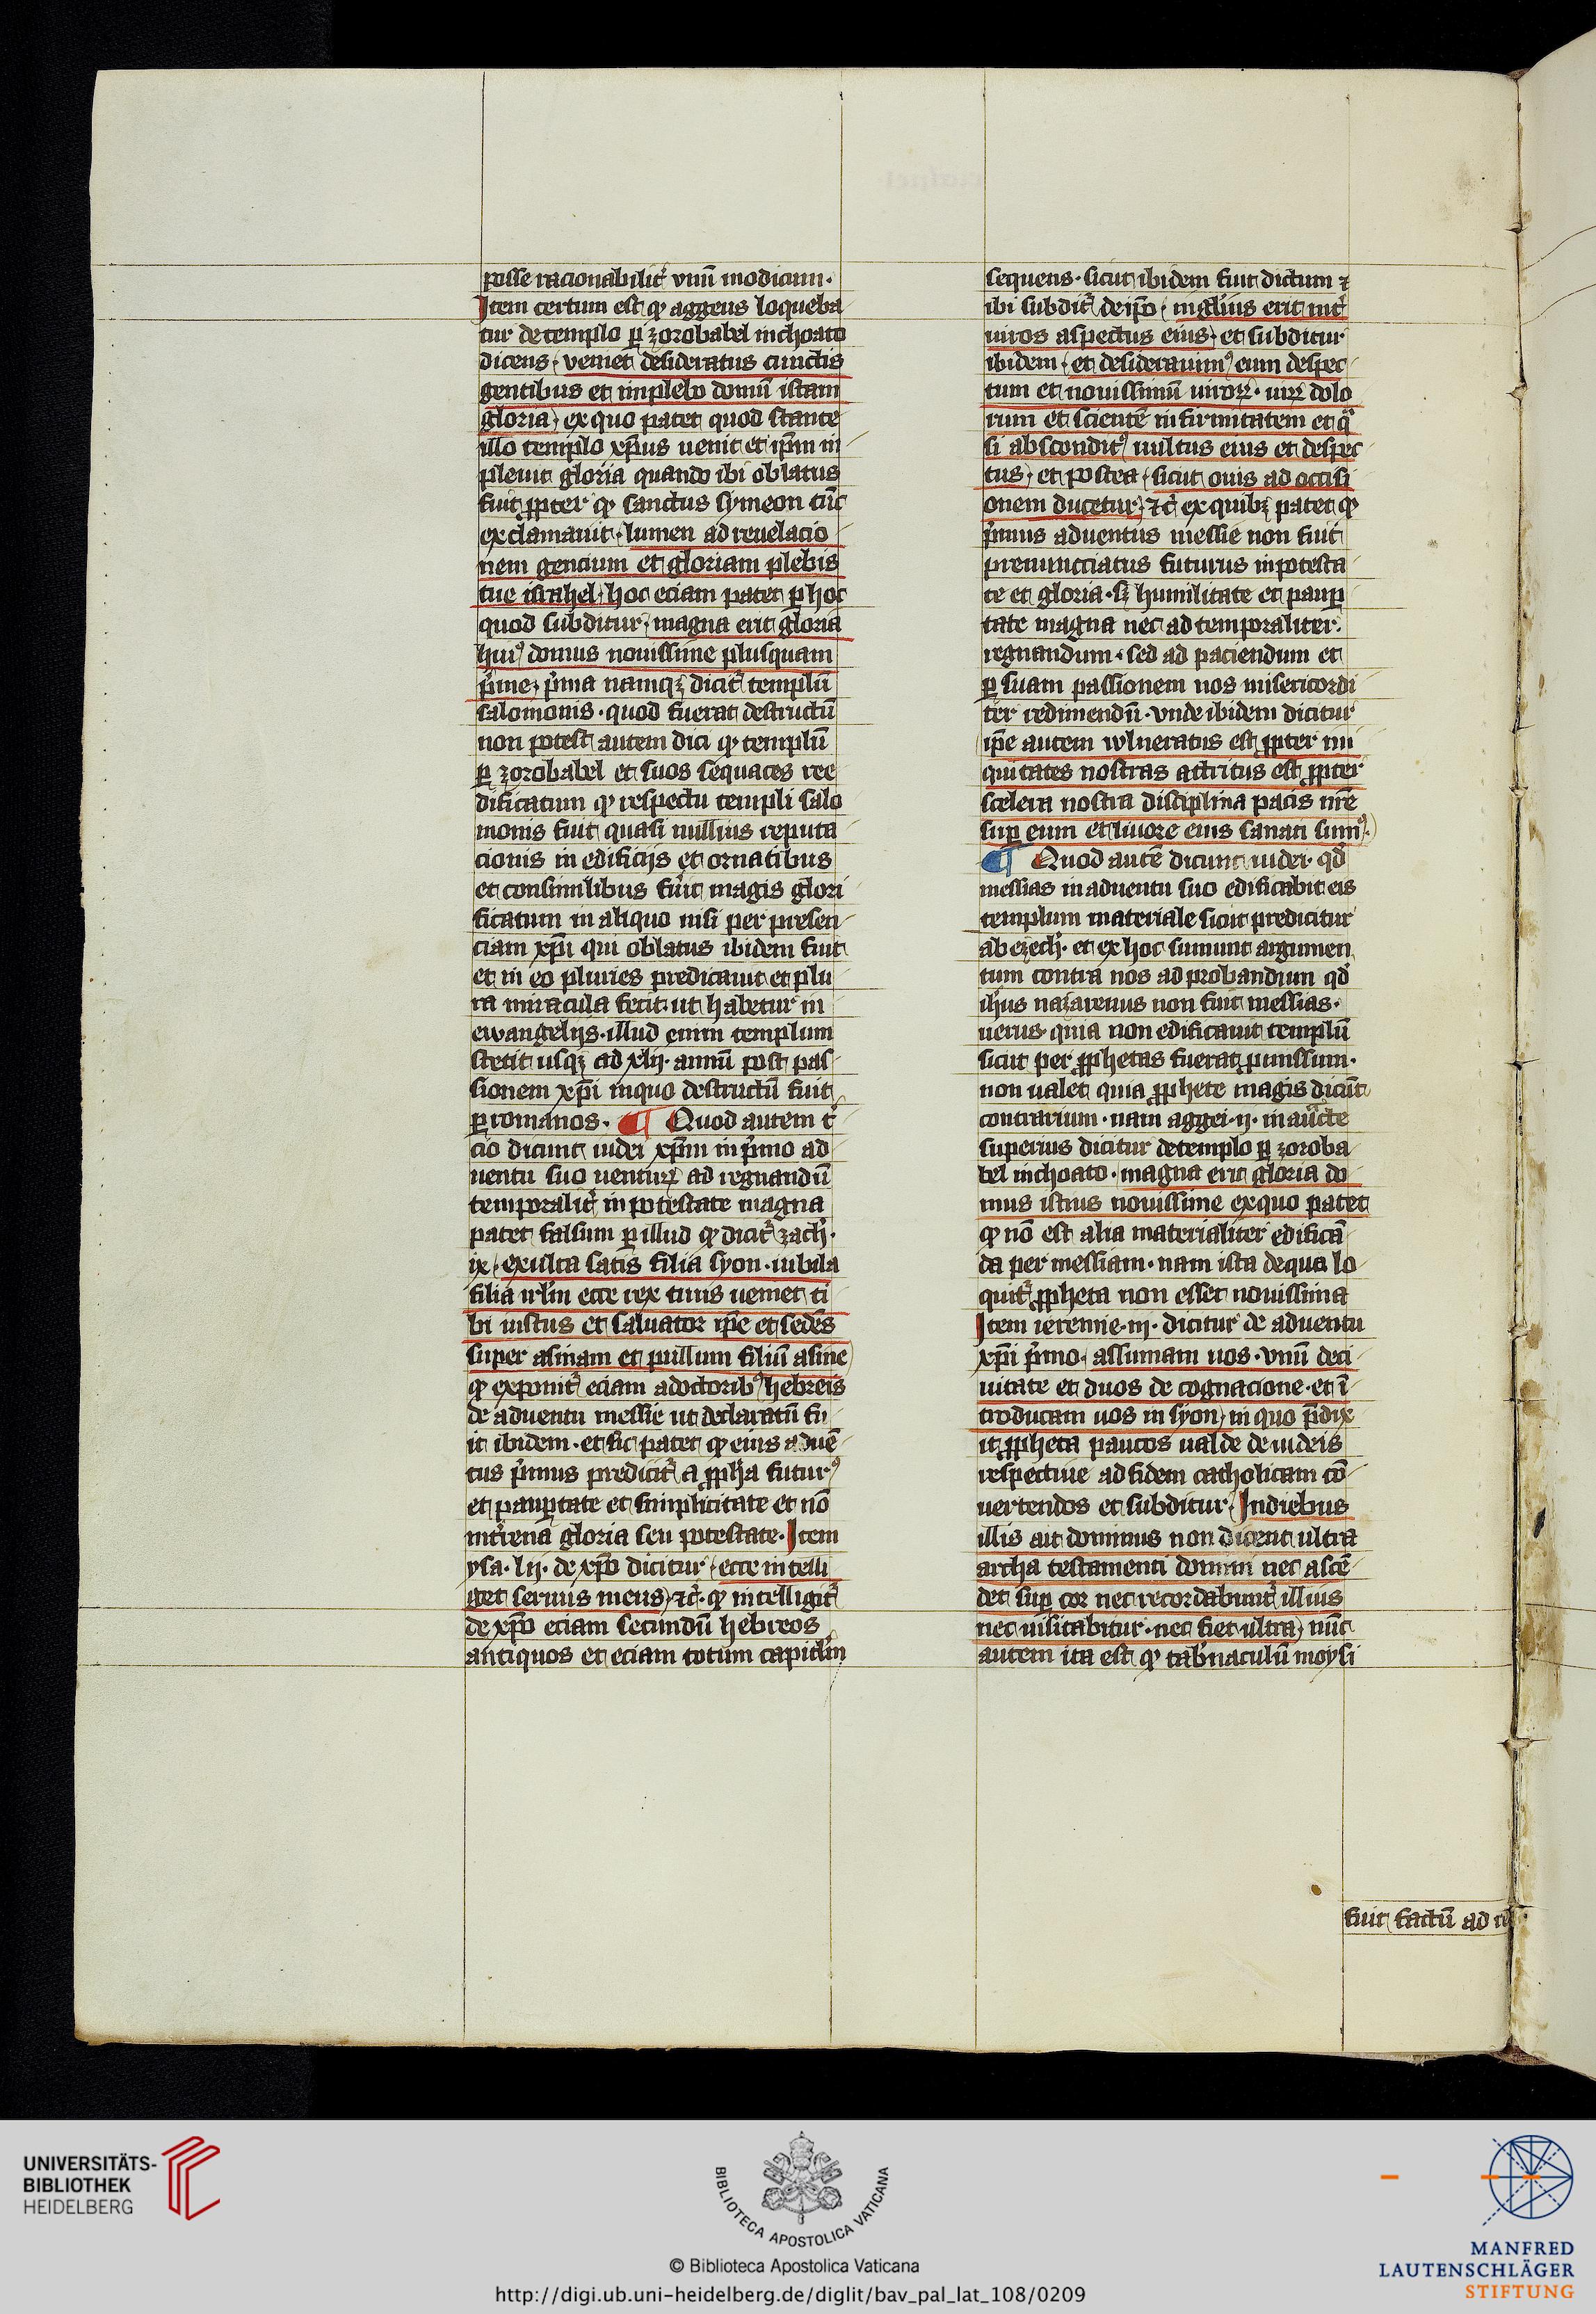 posse racionabilit᷑ vnū modicum·
Item certum est ꝙ aggeus loqueba
tur de templo ꝑ zorobabel inchoato
dicens· veniet desideratus cunctis
gentibus et implebo domū istam
gloria· ex quo patet quod stante
illo templo xp̄us uenit et ip̄m in
pleuit gloria quando ibi oblatus
fuit ꝓpter ꝙ sanctus symeon tūc
exclamauit· lumen ad reuelacio
nem gencium et gloriam plebis
tue israhel· hoc eciam patet ꝑ hoc
quod subditur· magna erit gloria
huiꝰ domus nouissime plusquam
p̄me· p̄ma namqꝫ dicit᷑ templū
salomonis· quod fuerat destructū
non potest autem dici ꝙ templū
ꝑ zorobabel et suos sequaces ree
dificatum ꝙ respectu templi salo
monis fuit quasi nullius reputa
cionis in edificijs et ornatibus
et consimilibus fu̓it magis glori
ficatum in aliquo nisi per presen
ciam xp̄i qui oblatus ibidem fuit
et in eo pluries predicauit et plu
ra miracula fecit· ut habetur in
ewangelijs· illud enim templum
stetit usqꝫ ad xlij· annū post pas
sionem xp̄i in quo destructū fuit
ꝑ romanos· ¶ Quod autem t̓
cio dicunt iudei xp̄m in p̄mo ad
uentu suo uenturꝝ ad regnandū
temporalit᷑ in potestate magna
patet falsum ꝑ illud ꝙ dicit᷑ zach̓·
ix· exulta satis filia syon· iubila
filia ir̄lm ecce rex tuus ueniet ti
bi iustus et saluator ip̄e et sedēs
super asinam et pullum filiū asine
ꝙ exponit᷑ eciam a doctoribꝰ hebreis
de aduentu messie ut declaratū fu
it ibidem· et sic patet ꝙ eius aduē
tus p̄mus predicit᷑ a ꝓph̄a futurꝰ
et pauꝑtate et simplicitate et nō
in t̓rena gloria seu potestate· Item
ysa· lij· de xp̄o dicitur· ecce intelli
get seruus meus· ⁊c̄· ꝙ intelligit᷑
de xp̄o eciam secundū hebreos
antiquos et eciam totum capitl̄m
sequens· sicut ibidem fuit dictum ⁊
ibi subdit᷑ de ip̄o· inglōius erit int̓
uiros aspectus eius· et subditur
ibidem· et desiderauimꝰ eum despec
tum et nouissimū uiroꝝ· uiꝝ dolo
rum et scientē infirmitatem et q̄
si absconditꝰ uultus eius et despec
tus· et postea· sicut ouis ad occisi
onem ducetur· ⁊c̄ ex quibꝫ patet ꝙ
p̄mus aduentus messie non fuit
prenunciatus futurus in potesta
te et gloria· sꝫ humilitate et pauꝑ
tate magna nec ad temporaliter
regnandum· sed ad paciendum et
ꝑ suam passionem nos misericordi
ter redimendū· vnde ibidem dicitur
ip̄e autem wlneratus est ꝓpter ini
quitates nostras attritus est ꝓpter
scelera nostra disciplina pacis nr̄e
suꝑ eum et liuore eius sanati sumꝰ·
¶ Quod autē dicunt iudei· qd̓
messias in aduentu suo edificabit eis
templum materiale sicut predicitur
ab ezech̓· et ex hoc sumunt argumen
tum contra nos ad probandum qd̓
ih̄us nazarenus non fuit messias·
uerus· quia non edificauit templū
sicut per ꝓphetas fuerat ꝓmissum·
non ualet quia ꝓphete magis dicūt
contrarium· nam aggei· ij· in auc̄te
superius dicitur de templo ꝑ zoroba
bel inchoato· magna erit gloria do
mus istius nouissime ex quo patet
ꝙ nō est alia materialiter edificā
da per messiam· nam ista de qua lo
quit᷑ ꝓpheta non esset nouissima
Item ieremie· iij· dicitur de aduentu
xp̄i p̄mo· assumam uos· vnū de ci
uitate et duos de cognacione· et ī
troducam uos in syon· in quo p̄dix
it ꝓpheta paucos ualde de iudeis
respectiue ad fidem catholicam cō
uertendos et subditur· In diebus
illis ait dominus non dicent ultra
archa testamenti domini nec ascē
det suꝑ cor nec recordabunt᷑ illius
nec uisitabitur· nec fiet ultra· nūc
autem ita est ꝙ tab̓naculū moysi
fuit factū ad
UNIVERSITÄTS-
BIBLIOTHEK
HEIDELBERG
BIBLIOTECA APOSTOLICA VATICANA
© Biblioteca Apostolica Vaticana
http://digi.ub.uni-heidelberg.de/diglit/bav_pal_lat_108/0209
MANFRED
LAUTENSCHLÄGER
STIFTUNG